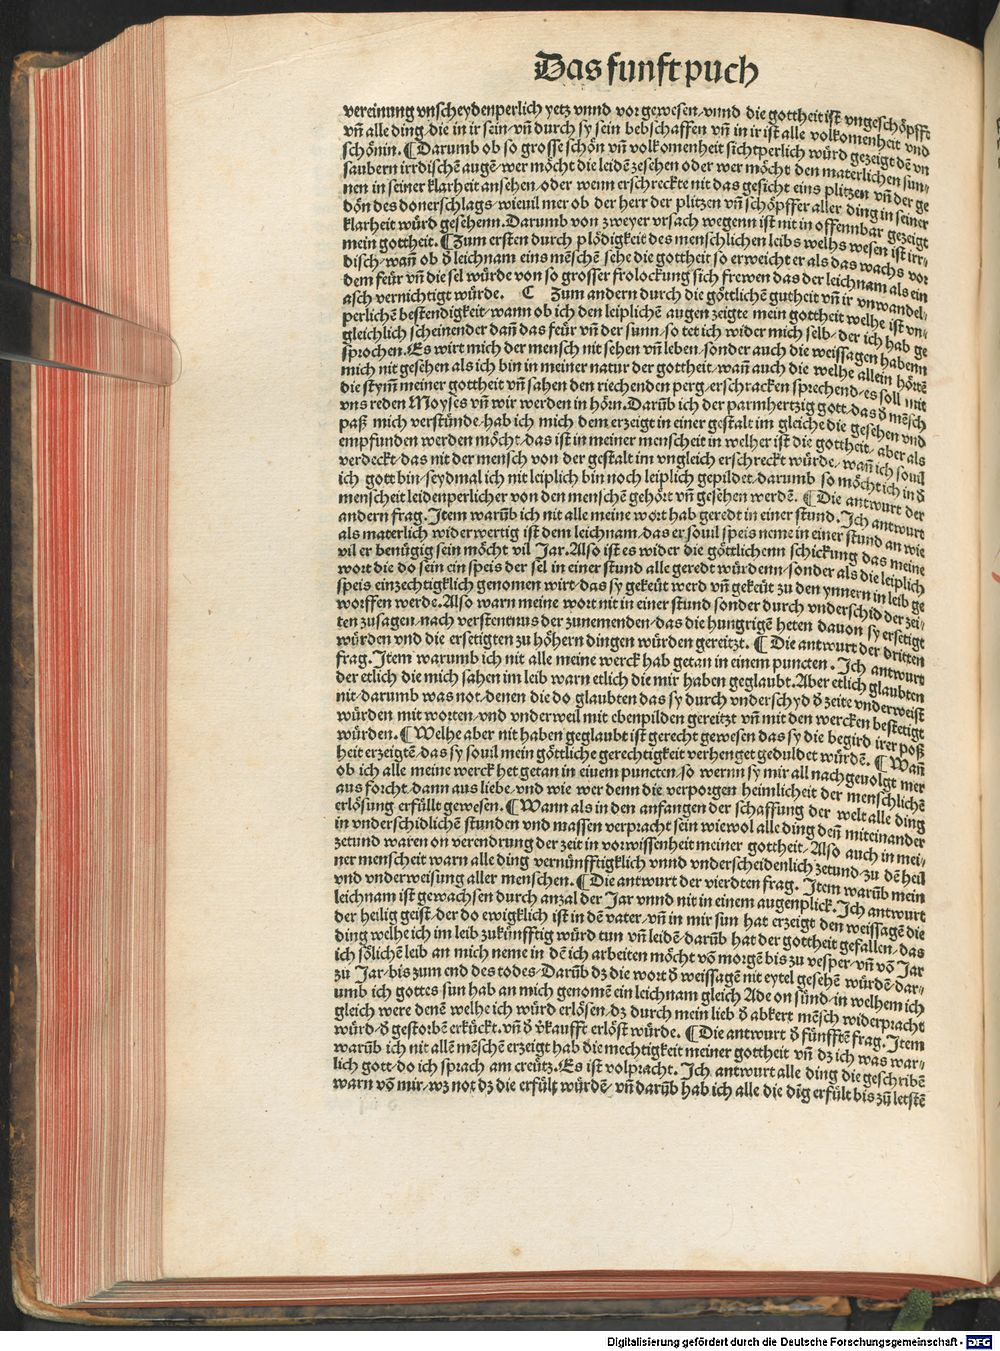 Das funft puch
vereinung vnscheydenperlich yetz vnnd vor gewesen/vnnd die gottheit ist vngeschöpfft
vñ alle ding/die in ir sein/vñ durch sy sein bebschaffen vñ in ir ist alle volkomenheit vnd
schönin. ¶ Darumb ob so grosse schön vñ volkomenheit sichtperlich würd gezeigt dẽ vn
saubern irrdischẽ augẽ/wer möcht die leidẽ zesehen oder wer möcht den materlichen sun/
nen in seiner klarheit ansehen/oder wenn erschreckte nit das gesicht eins plitzen vñ der ge
dön des donerschlags/wieuil mer ob der herr der plitzen vñ schöpffer aller ding in seiner
klarheit würd gesehenn. Darumb von zweyer vrsach wegenn ist nit in offennbar gezeigt
mein gottheit. ¶ Zum ersten durch plödigkeit des menschlichen leibs welhs wesen ist irr/
disch/wañ ob ð leichnam eins mẽschẽ sehe die gottheit so erweicht er als das wachs vor
dem feür vñ die sel würde von so grosser frolockung sich frewen das der leichnam als ein
asch vernichtigt würde. ¶ Zum andern durch die göttlichẽ gutheit vñ ir vnwandel/
perlichẽ bestendigkeit/wann ob ich den leiplichẽ augen zeigte mein gottheit welhe ist vn/
gleichlich scheinender dañ das feür vñ der sunn/so tet ich wider mich selb/der ich hab ge
sprochen. Es wirt mich der mensch nit sehen vñ leben/sonder auch die weissagen habenn
mich nit gesehen als ich bin in meiner natur der gottheit/wañ auch die welhe allein hörtẽ
die stym̃ meiner gottheit vñ sahen den riechenden perg/erschracken sprechend/es soll mit
vns reden Moyses vñ wir werden in hörn. Darũb ich der parmhertzig gott/das ð mẽsch
paß mich verstünde/hab ich mich dem erzeigt in einer gestalt im gleiche die gesehen vnd
empfunden werden möcht/das ist in meiner menscheit in welher ist die gottheit/aber als
verdeckt/das nit der mensch von der gestalt im vngleich erschreckt würde/wañ ich souil
ich gott bin/seydmal ich nit leiplich bin noch leiplich gepildet/darumb so möcht ich in ð
menscheit leidenperlicher von den menschẽ gehört vñ gesehen werdẽ. ¶ Die antwurt der
andern frag. Item warũb ich nit alle meine wort hab geredt in einer stund. Ich antwurt
als materlich widerwertig ist dem leichnam/das er souil speis neme in einer stund an wie
vil er benügig sein möcht vil Jar. Also ist es wider die göttlichenn schickung das meine
wort die do sein ein speis der sel in einer stund alle geredt würdenn/sonder als die leiplich
speis einzechtigklich genomen wirt/das sy gekeüt werd vñ gekeüt zu den ynnern in leib ge
worffen werde. Also warn meine wort nit in einer stund sonder durch vnderschid der zei/
ten zusagen/nach verstentnus der zunemenden/das die hungrigẽ heten dauon sy ersetigt
würden vnd die ersetigten zu höhern dingen würden gereitzt. ¶ Die antwurt der dritten
frag. Item warumb ich nit alle meine werck hab getan in einem puncten. Ich antwurt
der etlich die mich sahen im leib warn etlich die mir haben geglaubt. Aber etlich glaubten
nit/darumb was not/denen die do glaubten das sy durch vnderschyd ð zeite vnderweist
würden mit worten/vnd vnderweil mit ebenpilden gereitzt vñ mit den wercken bestetigt
würden. ¶ Welhe aber nit haben geglaubt ist gerecht gewesen das sy die begird irer poß
heit erzeigtẽ/das sy souil mein göttliche gerechtigkeit verhenget geduldet würdẽ. ¶ Wañ
ob ich alle meine werck het getan in einem puncten/so wernn sy mir all nachgeuolgt mer
aus forcht/dann aus liebe/vnd wie wer denn die verporgen heimlicheit der menschlichẽ
erlösung erfüllt gewesen. ¶ Wann als in den anfangen der schaffung der welt alle ding
in vnderschidlichẽ stunden vnd massen verpracht sein wiewol alle ding deñ miteinander
zetund waren on verendrung der zeit in vorwissenheit meiner gottheit/Also auch in mei/
ner menscheit warn alle ding vernünfftigklich vnnd vnderscheidenlich zetund/zu dẽ heil
vnd vnderweisung aller menschen. ¶ Die antwurt der vierdten frag. Item warũb mein
leichnam ist gewachsen durch anzal der Jar vnnd nit in einem augenplick. Ich antwurt
der heilig geist/der do ewigklich ist in dẽ vater/vñ in mir sun hat erzeigt den weissagẽ die
ding welhe ich im leib zukünfftig würd tun vñ leidẽ/darũb hat der gottheit gefallen/das
ich sölichẽ leib an mich neme in dẽ ich arbeiten möcht võ morgẽ bis zu vesper/vñ võ Jar
zu Jar/bis zum end des todes/Darũb dz die wort ð weissagẽ nit eytel gesehẽ würdẽ/dar/
umb ich gottes sun hab an mich genomẽ ein leichnam gleich Ade on sünd/in welhem ich
gleich were denẽ welhe ich würd erlösen/dz durch mein lieb ð abkert mẽsch widerpracht
würd/ð gestorbẽ erkückt. vñ ð v̾kaufft erlöst würde. ¶ Die antwurt ð fünfftẽ frag. Item
warũb ich nit allẽ mẽschẽ erzeigt hab die mechtigkeit meiner gottheit vñ dz ich was war/
lich gott/do ich sprach am creütz. Es ist volpracht. Ich antwurt alle ding die geschribẽ
warn võ mir/wz not dz die erfült würdẽ/vñ darũb hab ich alle die dĩg erfült bis zũ letstẽ
Digitalisierung gefördert durch die Deutsche Forschungsgemeinschaft - DFG